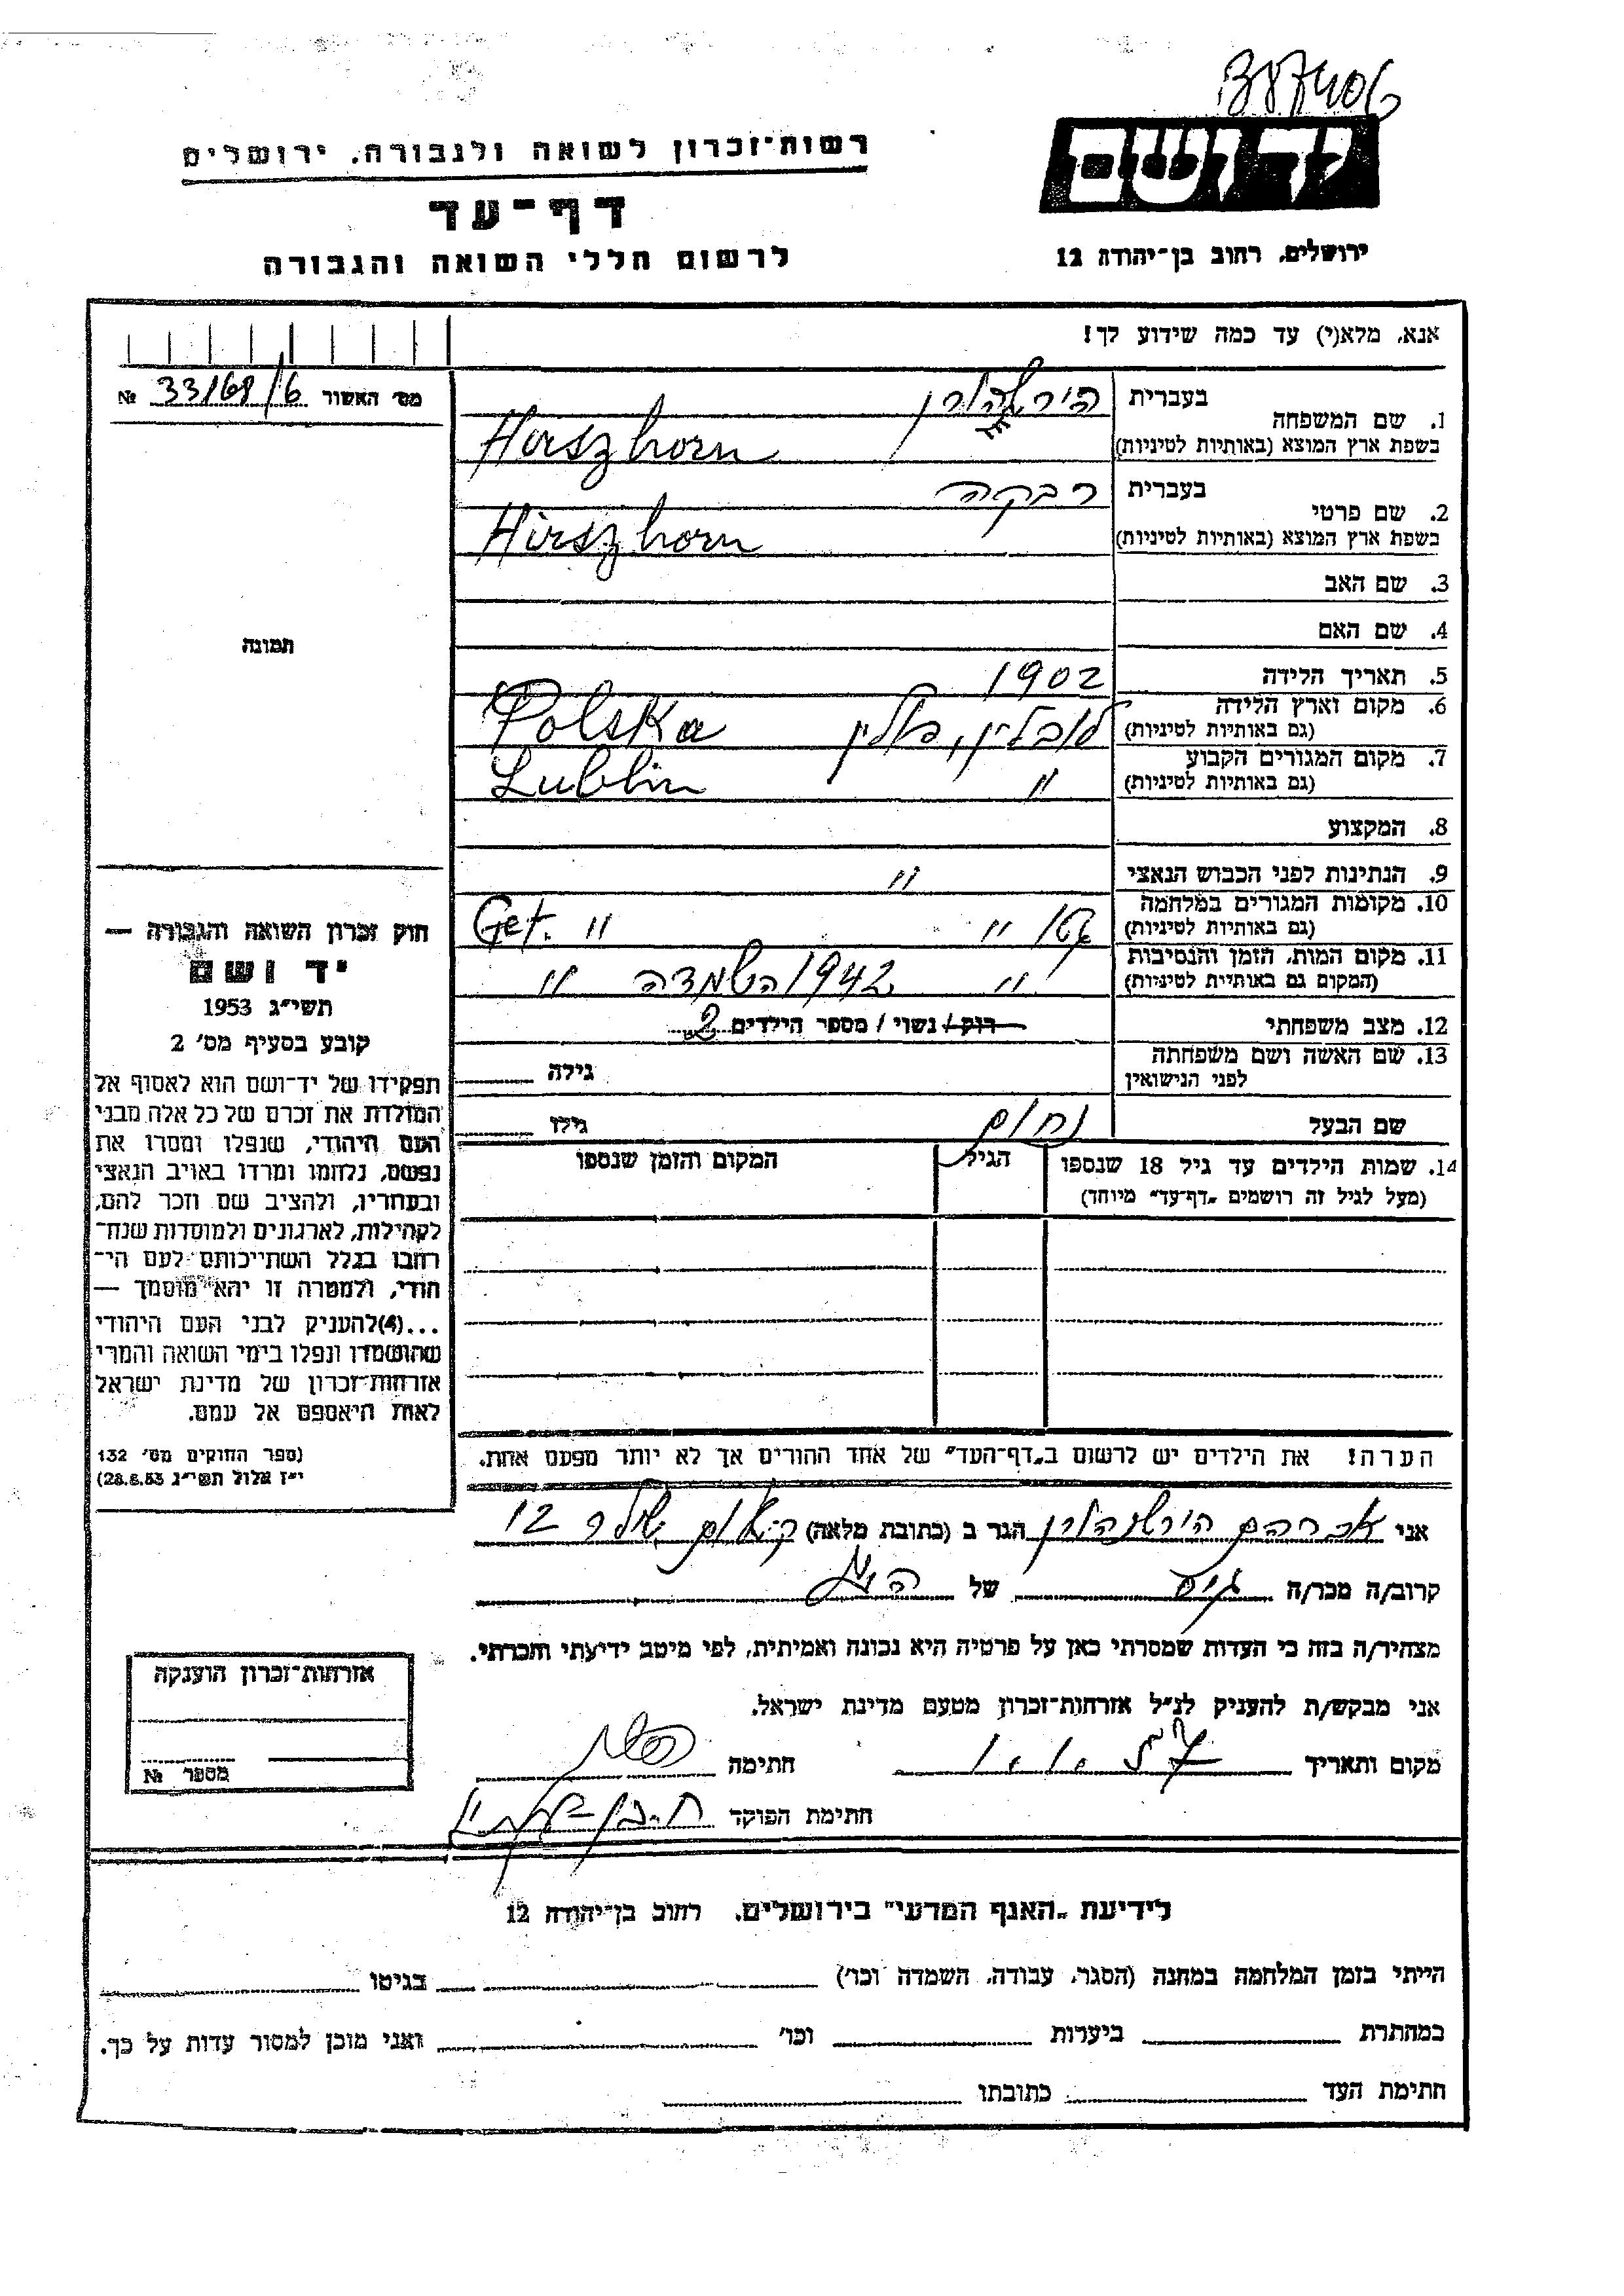 387406
רשות־זכרון לשואה ולגבורה, ירושלים
יד ושם
דף־עד
לרשום חללי השואה והגבורה
ירושלים, רחוב בן־יהודה 12
אנא, מלא(י) עד כמה שידוע לך!
מס׳ האשור 33/68/6 №
1. שם המשפחה
בעברית הירשהורן
בשפת ארץ המוצא (באותיות לטיניות) Hirszhorn
2. שם פרטי
בעברית רבקה
בשפת ארץ המוצא (באותיות לטיניות) Hirszhorn
3. שם האב
4. שם האם
תמונה
5. תאריך הלידה 1902
6. מקום וארץ הלידה
(גם באותיות לטיניות) לובלין, פולין Polska
7. מקום המגורים הקבוע
(גם באותיות לטיניות) " Lublin
8. המקצוע
9. הנתינות לפני הכבוש הנאצי "
10. מקומות המגורים במלחמה
(גם באותיות לטיניות) גטו " Get. "
11. מקום המות, הזמן והנסיבות
(המקום גם באותיות לטיניות) " 1942 השמדה "
12. מצב משפחתי רוק / נשוי / מספר הילדים 2
13. שם האשה ושם משפחתה
לפני הנישואין גילה
שם הבעל נחום גילו
14. שמות הילדים עד גיל 18 שנספו הגיל המקום והזמן שנספו
(מעל לגיל זה רושמים „דף־עד" מיוחד)
חוק זכרון השואה והגבורה —
יד ושם
תשי״ג 1953
קובע בסעיף מס׳ 2
תפקידו של יד־ושם הוא לאסוף אל
המולדת את זכרם של כל אלה מבני
העם היהודי, שנפלו ומסרו את
נפשם, נלחמו ומרדו באויב הנאצי
ובעוזריו, ולהציב שם וזכר להם,
לקהילות, לארגונים ולמוסדות שנח־
רבו בגלל השתייכותם לעם הי־
הודי, ולמטרה זו יהא מוסמך —
...(4) להעניק לבני העם היהודי
שהושמדו ונפלו בימי השואה והמרי
אזרחות־זכרון של מדינת ישראל
לאות היאספם אל עמם.
(ספר החוקים מס׳ 132
י״ז אלול תשי״ג 28.8.53)
הערה! את הילדים יש לרשום ב„דף־העד" של אחד ההורים אך לא יותר מפעם אחת.
אני אברהם הירשהורן הגר ב (כתובת מלאה) 12
קרוב/ה מכר/ה גיס של
מצהיר/ה בזה כי העדות שמסרתי כאן על פרטיה היא נכונה ואמיתית, לפי מיטב ידיעתי והכרתי.
אני מבקש/ת להעניק לנ״ל אזרחות־זכרון מטעם מדינת ישראל.
מקום ותאריך חתימה
חתימת הפוקד
אזרחות־זכרון הוענקה
מספר №
לידיעת „האגף המדעי" בירושלים, רחוב בן־יהודה 12
הייתי בזמן המלחמה במחנה (הסגר, עבודה, השמדה וכו׳) בגיטו
במחתרת ביערות וכו׳ ואני מוכן למסור עדות על כך.
חתימת העד כתובתו